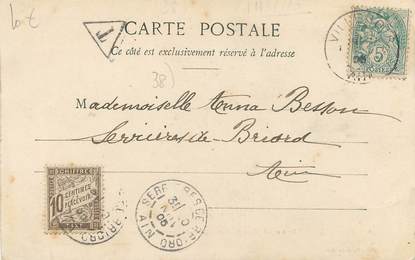 lot
T
CARTE POSTALE
Ce côté est exclusivement réservé à l'adresse
38)
Mademoiselle Anna Besson
Serrières-de-Briord
Ain
5
CHIFFRE
10 CENTIMES
à percevoir
TAXE
AIN